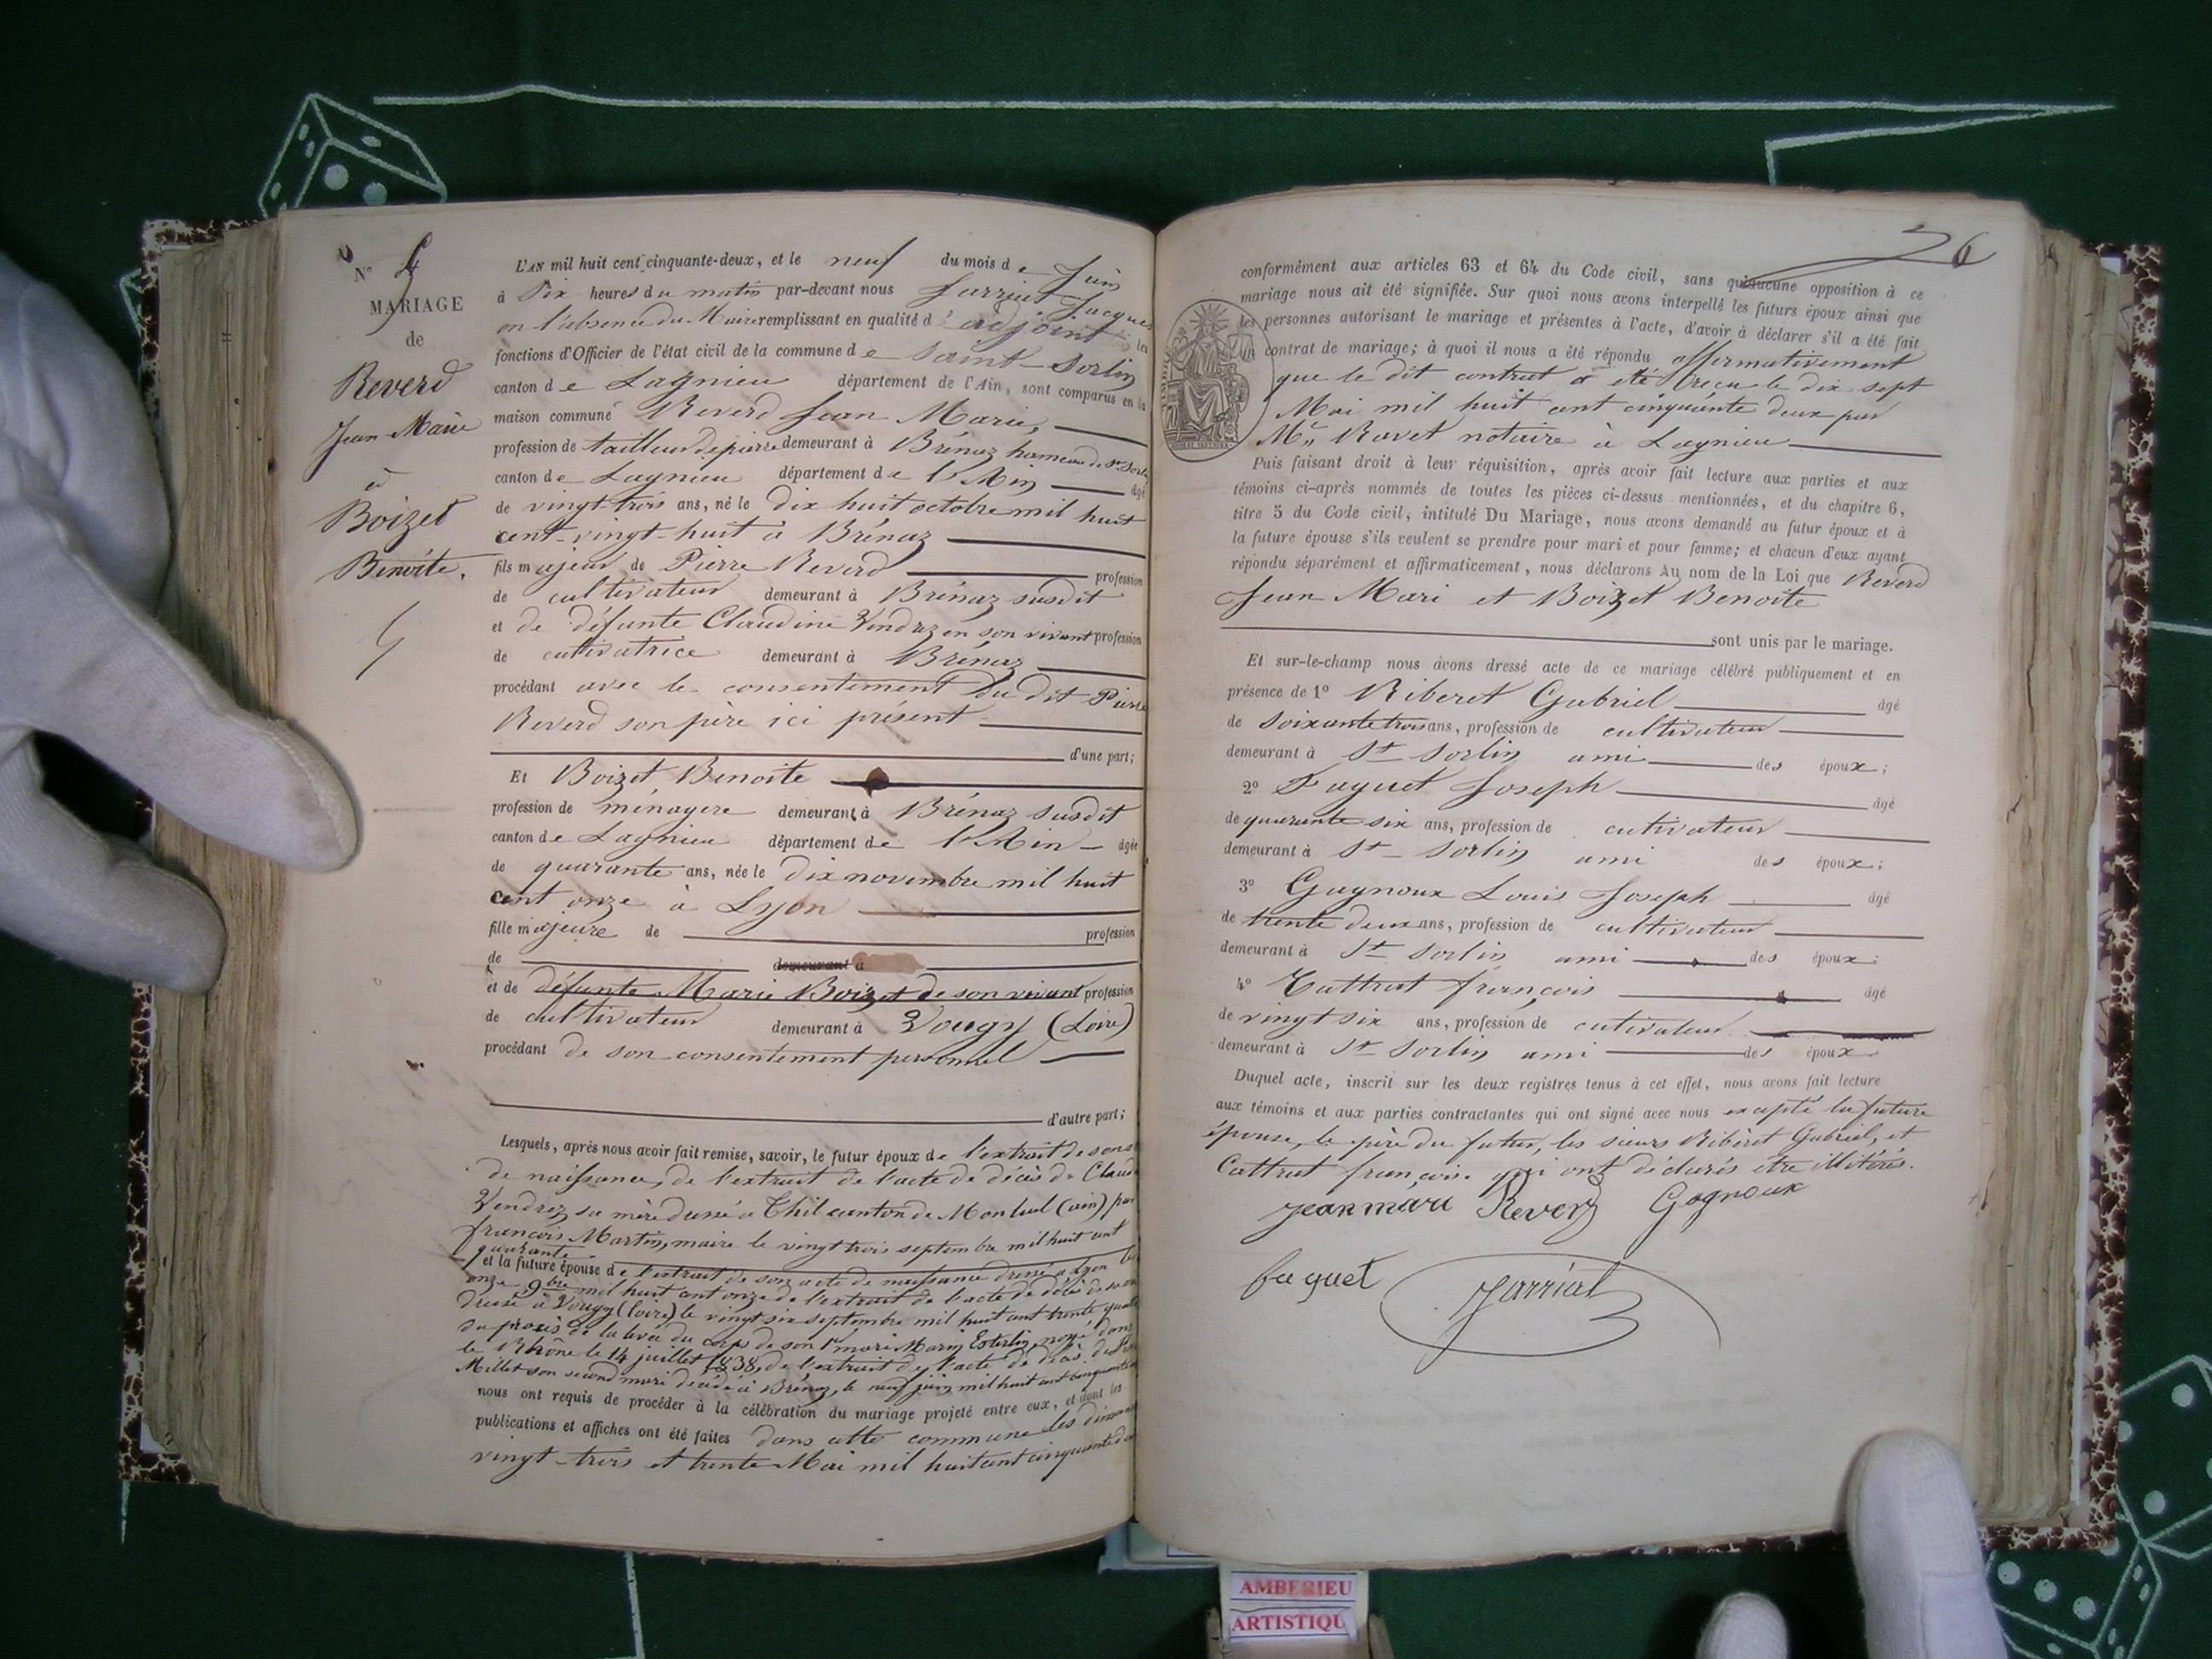 N° 4
MARIAGE
de
Reverd
Jean Marie
à
Boizet
Benoite.
L'AN mil huit cent cinquante-deux, et le neuf du mois de Juin
à dix heures du matin par-devant nous Jarriat Jacques
en l'absence du Maire remplissant en qualité d'adjoint les
fonctions d'Officier de l'état civil de la commune de Saint-Sorlin
canton de Lagnieu département de l'Ain, sont comparus en la
maison commune Reverd Jean Marie,
profession de tailleur de pierre demeurant à Brénaz hameau de St Sorlin
canton de Lagnieu département de l'Ain âgé
de vingt-trois ans, né le dix huit octobre mil huit
cent-vingt-huit à Brénaz
fils majeur de Pierre Reverd profession
de cultivateur demeurant à Brénaz susdit
et de défunte Claudine Vendrez en son vivant profession
de cultivatrice demeurant à Brénaz
procédant avec le consentement du dit Pierre
Reverd son père ici présent
d'une part;
Et Boizet Benoite
profession de ménagere demeurant à Brénaz susdit
canton de Lagnieu département de l'Ain âgée
de quarante ans, née le dix novembre mil huit
cent onze à Lyon
fille majeure de profession
de demeurant à
et de défunte Marie Boizet de son vivant profession
de cultivateur demeurant à Vougy (Loire)
procédant de son consentement personnel
d'autre part;
Lesquels, après nous avoir fait remise, savoir, le futur époux de l'extrait de son
de naissance, de l'extrait de l'acte de décès de
Vendrez sa mère dressé à Thil canton de Montluel (ain) par
françois Martin, maire le vingt trois septembre mil huit cent
quarante
et la future épouse de l'extrait de son acte de naissance dressé à Lyon le
onze 9bre mil huit cent onze de l'extrait de l'acte de décès de
dressé à Vougy (Loire) le vingt six septembre mil huit cent trente quatre
du procès de la levée du corps de son 1er mari Marin Esterlin, noyé dans
le Rhône le 14 juillet 1838, de l'extrait de l'acte de décès de
Millet son second mari décédé à Brénaz, le neuf juin mil huit cent
nous ont requis de procéder à la célébration du mariage projeté entre eux, et dont les
publications et affiches ont été faites dans cette commune les
vingt-trois et trente Mai mil huit cent cinquante
26
conformément aux articles 63 et 64 du Code civil, sans qu'aucune opposition à ce
mariage nous ait été signifiée. Sur quoi nous avons interpellé les futurs époux ainsi que
les personnes autorisant le mariage et présentes à l'acte, d'avoir à déclarer s'il a été fait
un contrat de mariage; à quoi il nous a été répondu affirmativement
que le dit contrat a été reçu le dix sept
Mai mil huit cent cinquante deux par
Me Ravet notaire à Lagnieu
Puis faisant droit à leur réquisition, après avoir fait lecture aux parties et aux
témoins ci-après nommés de toutes les pièces ci-dessus mentionnées, et du chapitre 6,
titre 5 du Code civil, intitulé Du Mariage, nous avons demandé au futur époux et à
la future épouse s'ils veulent se prendre pour mari et pour femme; et chacun d'eux ayant
répondu séparément et affirmativement, nous déclarons Au nom de la Loi que Reverd
Jean Mari et Boizet Benoite
sont unis par le mariage.
Et sur-le-champ nous avons dressé acte de ce mariage célébré publiquement et en
présence de 1° Riberet Gabriel âgé
de soixante trois ans, profession de cultivateur
demeurant à St Sorlin ami des époux;
2° Faguet Joseph âgé
de quarante six ans, profession de cutivateur
demeurant à St-Sorlin ami des époux;
3° Gagnoux Louis Joseph âgé
de trente deux ans, profession de cultivateur
demeurant à St Sorlin ami des époux;
4° Cattrat françois âgé
de vingt six ans, profession de cutivateur
demeurant à St Sorlin ami des époux.
Duquel acte, inscrit sur les deux registres tenus à cet effet, nous avons fait lecture
aux témoins et aux parties contractantes qui ont signé avec nous excepté la future
épouse, le père du futur, les sieurs Ribèret Gabriel, et
Cattrat françois. qui ont déclarés être illitérés.
jean mari Reverd Gagnoux
faguet Jarriat
AMBERIEU
ARTISTIQU